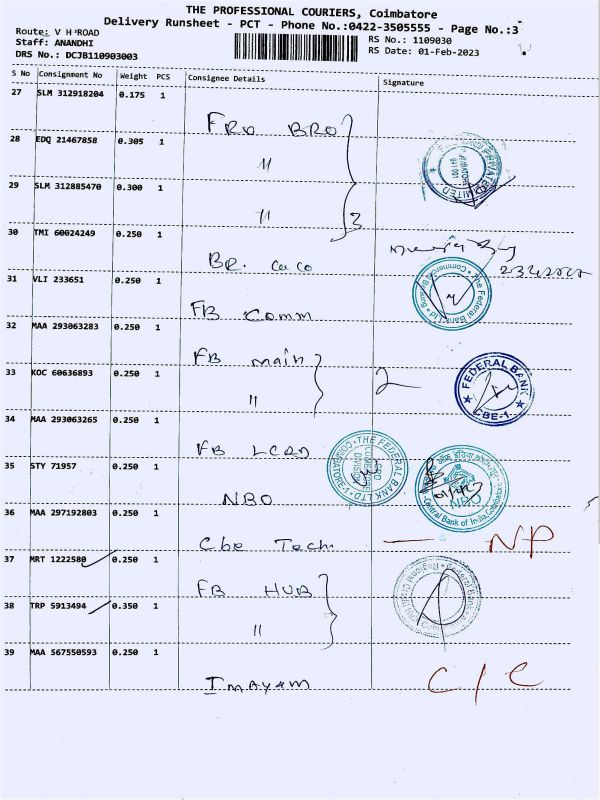 THE PROFESSIONAL COURIERS, Coimbatore
Delivery Runsheet - PCT - Phone No.:0422-3505555 - Page No.:3
Route: V H ROAD
RS No.: 1109030
Staff: ANANDHI
RS Date: 01-Feb-2023
DRS No.: DCJB110903003
S No Consignment No Weight PCS Consignee Details Signature
27 SLM 312918204 0.175 1
FRO BRO
28 EDQ 21467858 0.305 1
"
29 SLM 312885470 0.300 1
" 3
30 TMI 60024249 0.250 1
BR.
31 VLI 233651 0.250 1
The Federal Bank Ltd
FB Comm
32 MAA 293063283 0.250 1
FB main
33 KOC 60636893 0.250 1
" 2
FEDERAL BANK
CBE-1.
34 MAA 293063265 0.250 1
FB LCRD
THE FEDERAL BANK LTD.
35 STY 71957 0.250 1
NBO
NBO
Central Bank of India, Coimbatore
36 MAA 297192803 0.250 1
Cbe Tech — NP
37 MRT 1222580 0.250 1
FB HUB
38 TRP 5913494 0.350 1
"
39 MAA 567550593 0.250 1
Imayam C/C